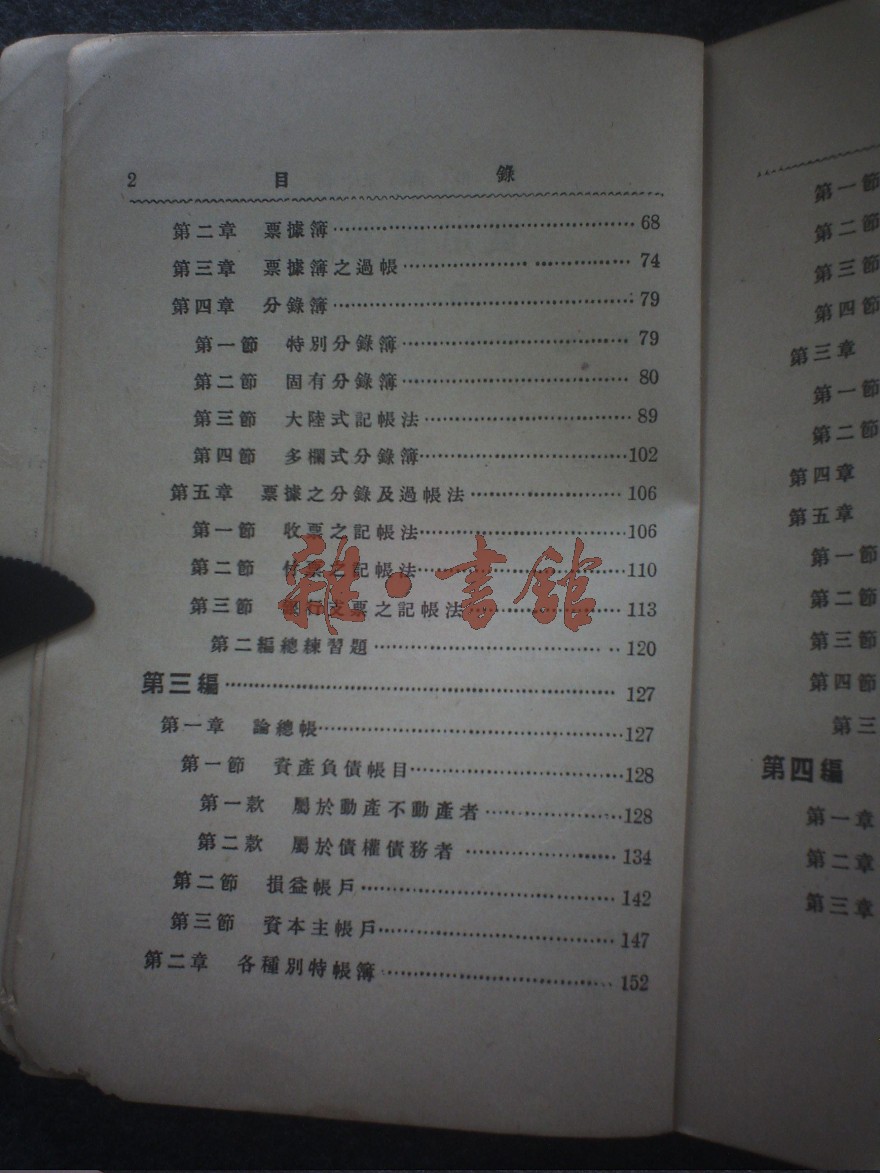 2 目錄
第二章 票據簿 68
第三章 票據簿之過帳 74
第四章 分錄簿 79
第一節 特別分錄簿 79
第二節 固有分錄簿 80
第三節 大陸式記帳法 89
第四節 多欄式分錄簿 102
第五章 票據之分錄及過帳法 106
第一節 收票之記帳法 106
第二節 付票之記帳法 110
第三節 銀行支票之記帳法 113
第二編總練習題 120
第三編 127
第一章 論總帳 127
第一節 資產負債帳目 128
第一款 屬於動產不動產者 128
第二款 屬於債權債務者 134
第二節 損益帳戶 142
第三節 資本主帳戶 147
第二章 各種別特帳簿 152
雜·書館
第一節
第二節
第三節
第四節
第三章
第一節
第二節
第四章
第五章
第一節
第二節
第三節
第四節
第三
第四編
第一章
第二章
第三章